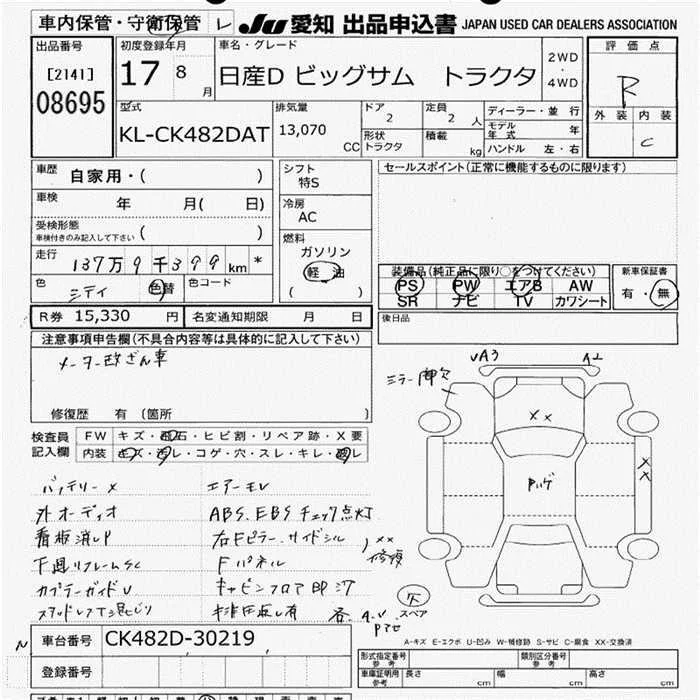 車内保管・守衛保管 レ JU 愛知 出品申込書 JAPAN USED CAR DEALERS ASSOCIATION
出品番号 初度登録年月 車名・グレード 評価点
[2141] 17 8月 日産D ビッグサム トラクタ 2WD・4WD R
08695
型式 排気量 ドア 定員 ディーラー・並行 外装 内装
KL-CK482DAT 13,070 CC 2 2人 モデル年式 年 C
形状 積載 ハンドル 左・右
トラクタ kg
車歴 自家用・( ) シフト セールスポイント(正常に機能するものに限ります)
特S
車検 年 月( 日) 冷房
AC
受検形態 ( )
車検付きのみ記入して下さい
燃料
ガソリン
軽油
( )
走行 137万9千399km *
色 シティ 色替 色コード
装備品(純正品に限り○をつけてください) 新車保証書
PS PW エアB AW 有・無
SR ナビ TV カワシート
R券 15,330円 名変通知期限 月 日 後日品
注意事項申告欄(不具合内容等は具体的に記入して下さい)
メーター改ざん車
修復歴 有 (箇所 )
A3
ミラー
××
××
検査員記入欄 FW キズ・飛石・ヒビ割・リペア跡・X要
内装 キズ・汚レ・コゲ・穴・スレ・キレ・
バッテリー×
外オーディオ ABS、EBSチェック点灯
看板消しP 右Fピラー、サイドシル
××
修復
Fパネル
キャビンフロア
スペア
A-キズ E-エクボ U-凹み W-補修跡 S-サビ C-腐食 XX-交換済
車台番号 CK482D-30219
登録番号
形式指定番号 参考 類別区分番号 参考
車庫証明用 参考 長さ cm 幅 cm 高さ cm